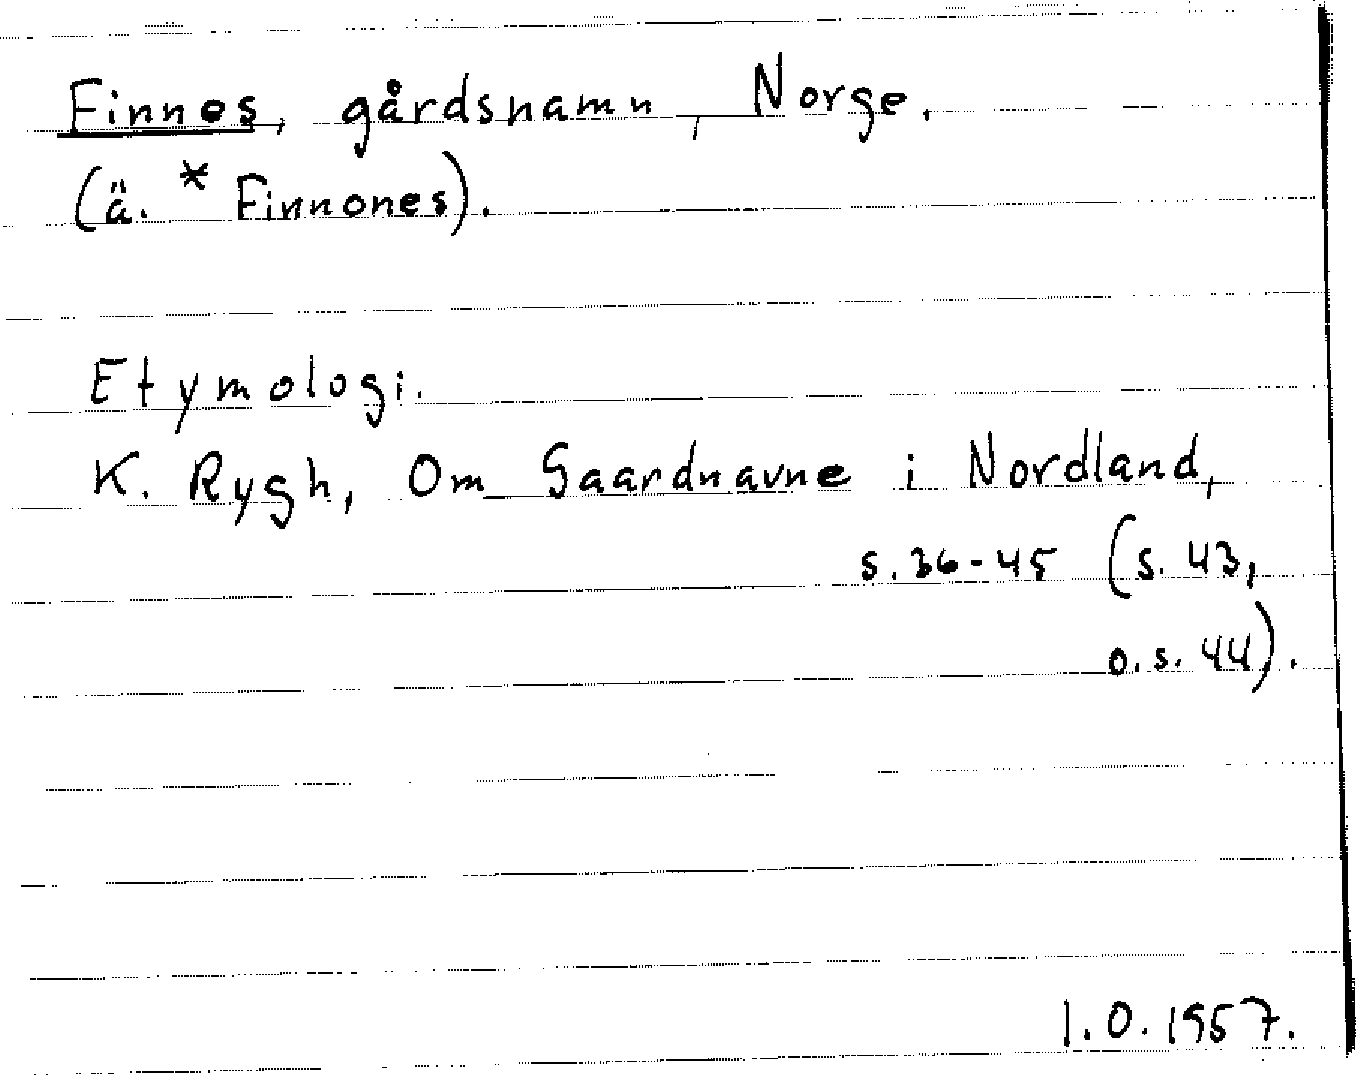 Finnes, gårdsnamn, Norge.
(ä. * Finnones).
Etymologi.
K. Rygh, Om Gaardnavne i Nordland,
s. 36-45 (s. 43,
o. s. 44).
I. O. 1957.